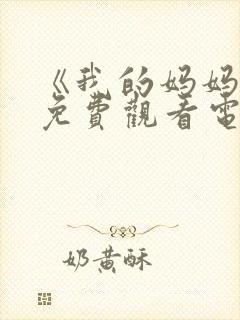 《我的妈妈
免費觀看電
奶黄酥